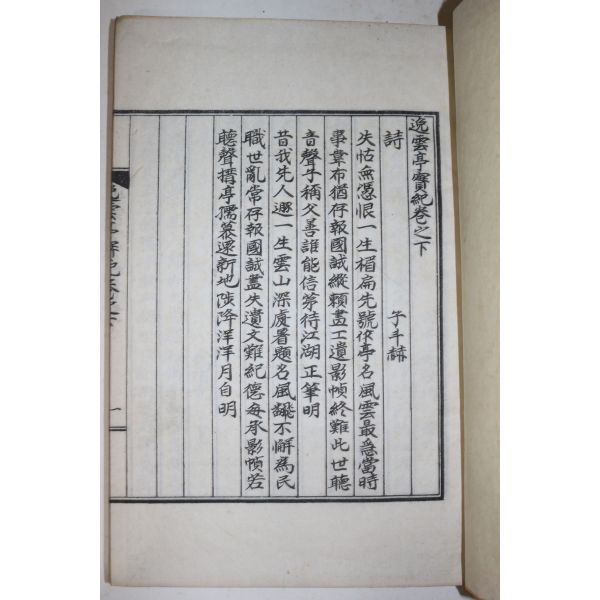 逸雲亭實紀卷之下
詩
子斗赫
失怙無憑恨一生楣扁先號作亭名風雲最急當時
事韋布猶存報國誠縱賴畫工遺影幀終難此世聽
音聲子稱父善誰能信第待江湖正筆明
昔我先人遯一生雲山深處署題名風飜不懈為民
職世亂常存報國誠盡失遺文難紀德每承影幀若
聽聲揩亭孺慕還新地陟降洋洋月白明